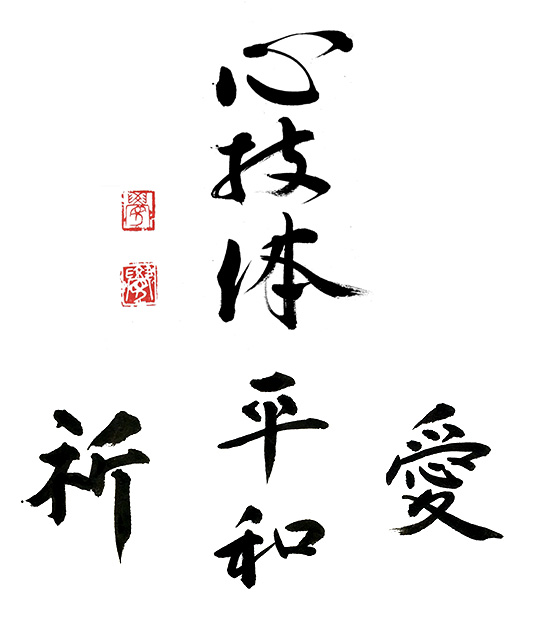 心技体
平和
愛
祈